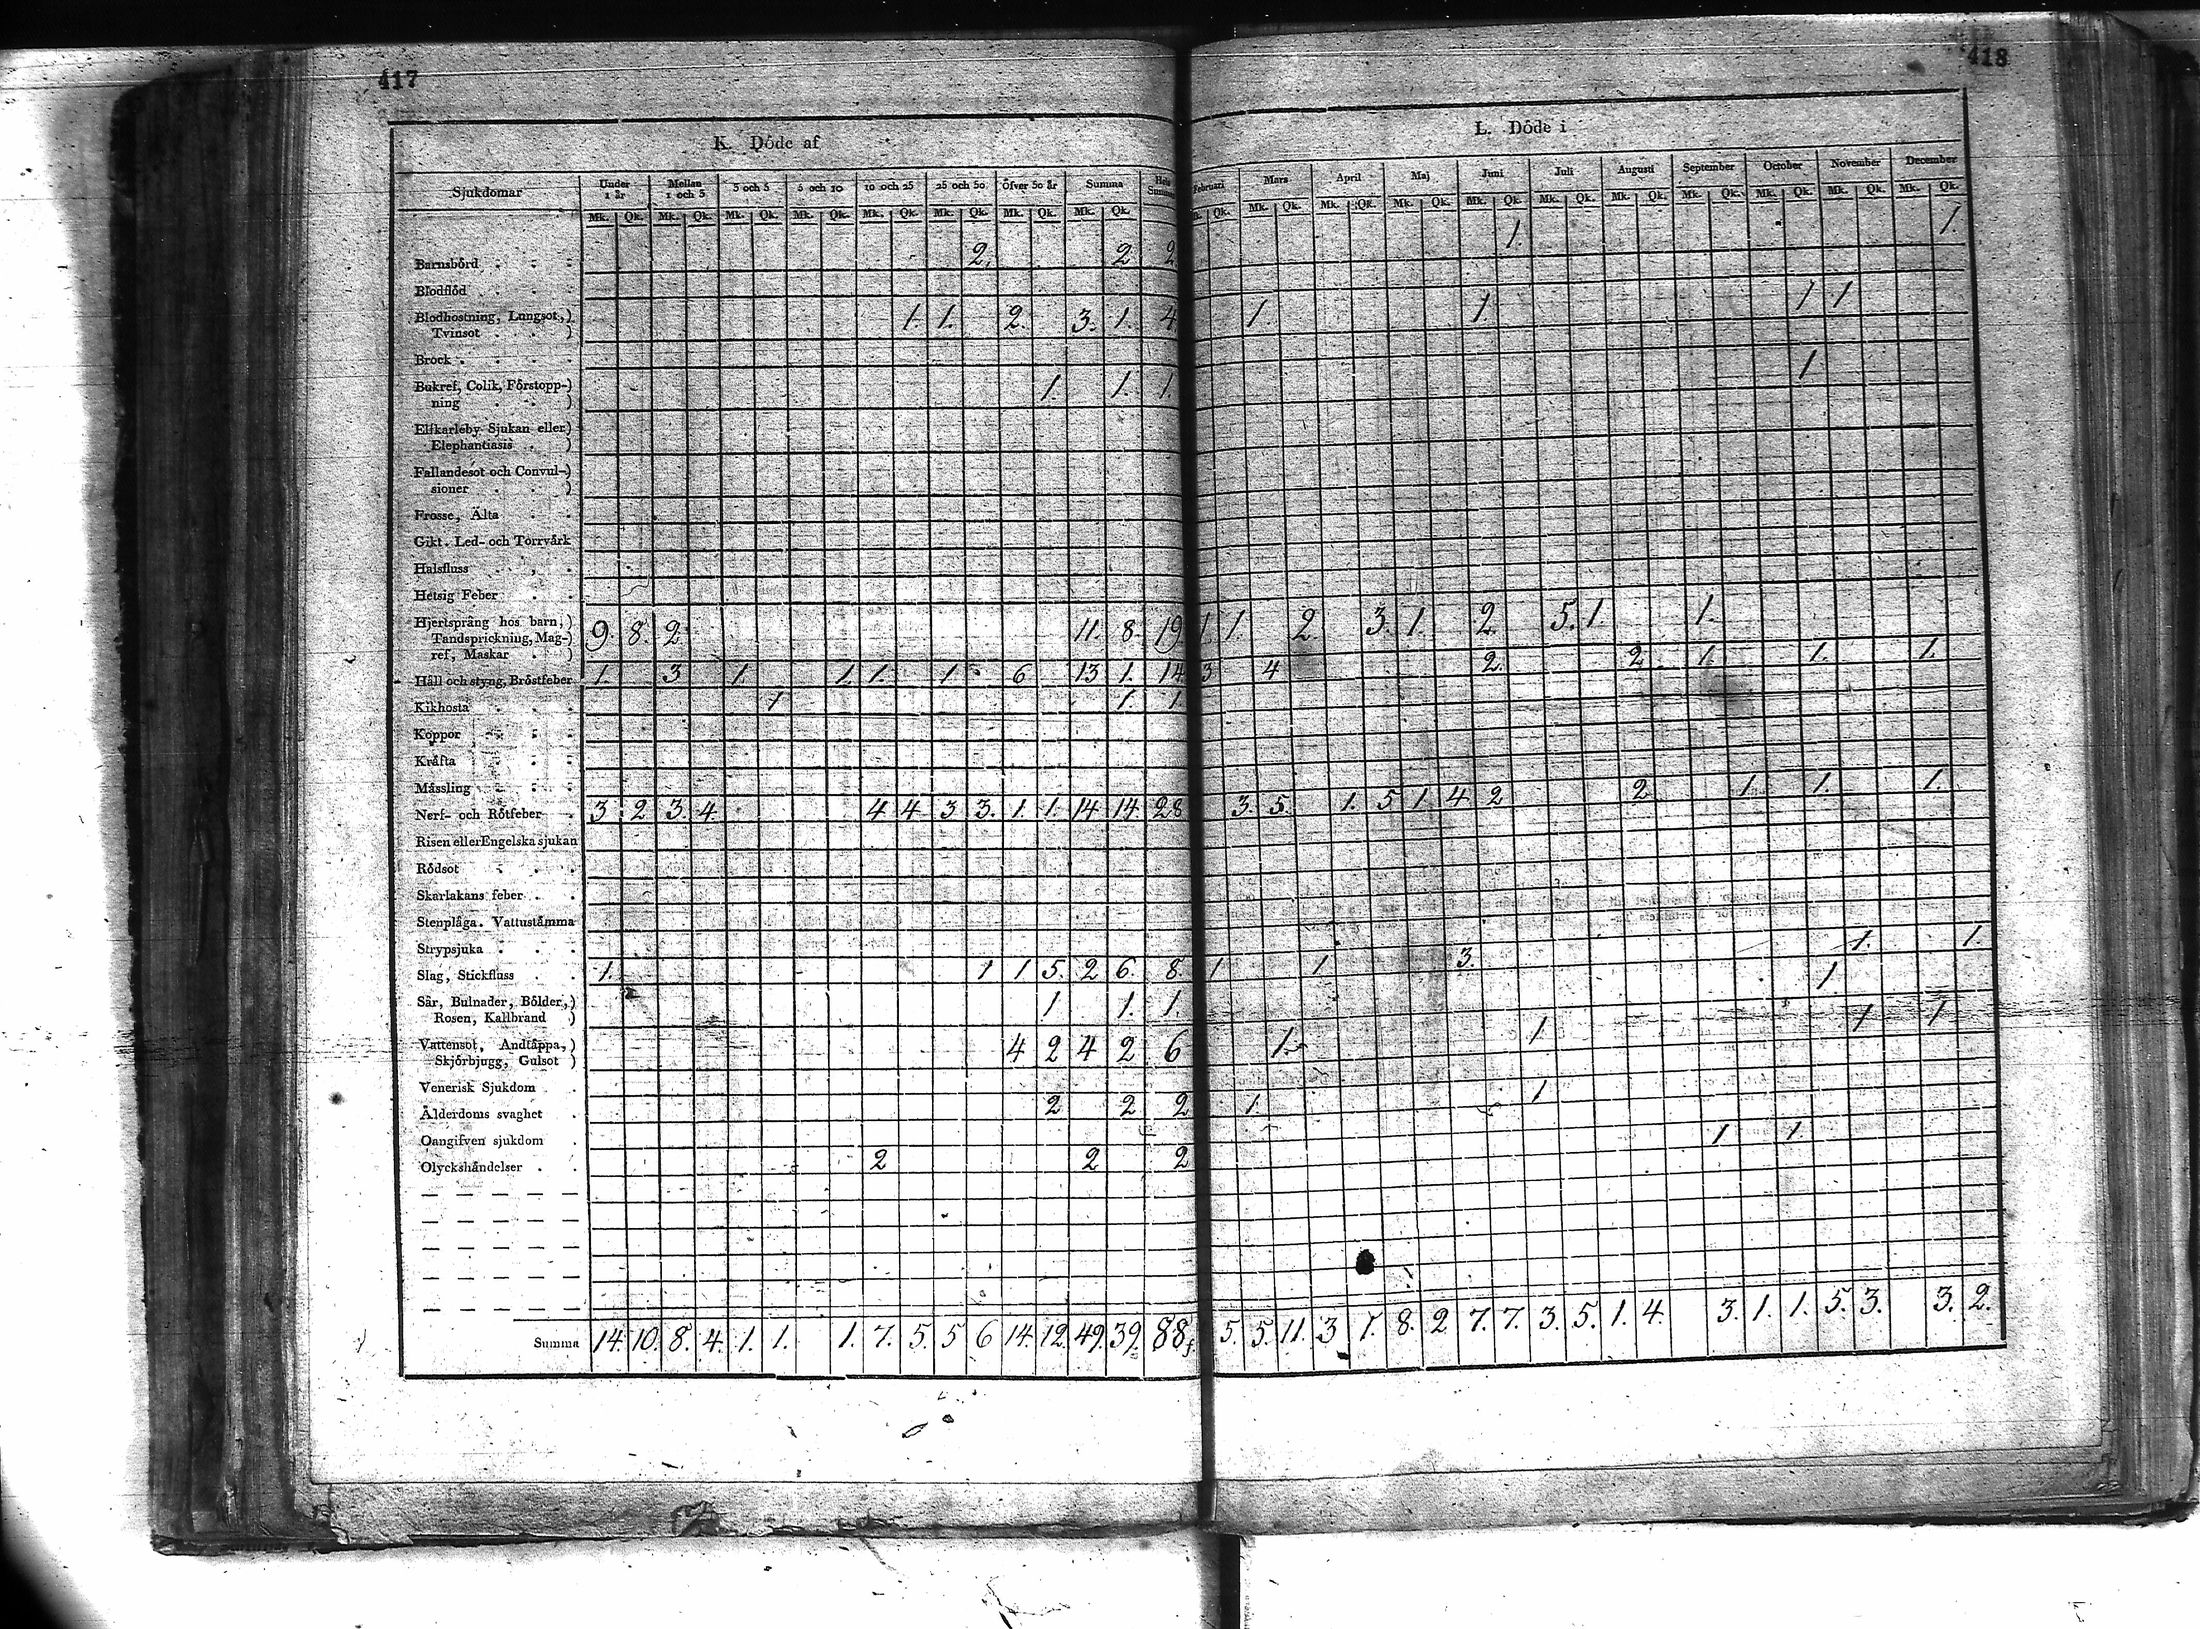 417
418
K. Döde af
L. Döde i
Sjukdomar | Under 1 år | Mellan 1 och 3 | 3 och 5 | 5 och 10 | 10 och 25 | 25 och 50 | Öfver 50 år | Summa | Hela Summa
Februari | Mars | April | Maj | Juni | Juli | Augusti | September | October | November | December
Mk. Qk. Mk. Qk. Mk. Qk. Mk. Qk. Mk. Qk. Mk. Qk. Mk. Qk. Mk. Qk.
Qk. Mk. Qk. Mk. Qk. Mk. Qk. Mk. Qk. Mk. Qk. Mk. Qk. Mk. Qk. Mk. Qk. Mk. Qk. Mk. Qk.
Barnsbörd 2. 2 2 1. 1.
Blodflöd
Blodhostning, Lungsot,)
Tvinsot ) 1. 1. 2. 3. 1. 4 1. 1. 1 1
Brock
Bukref, Colik, Förstopp-)
ning ) 1. 1. 1. 1.
Elfkarleby Sjukan eller)
Elephantiasis )
Fallandesot och Convul-)
sioner )
Frosse, Älta
Gikt. Led- och Torrvärk
Halsfluss
Hetsig Feber
Hjertsprång hos barn,)
Tandsprickning, Mag-)
ref, Maskar ) 9. 8. 2 11. 8. 19 1. 1 2 3. 1. 2. 5. 1. 1.
Håll och styng, Bröstfeber 1. 3 1. 1. 1. 1 6 13 1. 14 3 4 2. 2 1. 1. 1.
Kikhosta 1 1. 1
Koppor
Kräfta
Mässling
Nerf- och Rötfeber 3. 2 3. 4. 4 4 3 3. 1. 1. 14 14 28 3. 5. 1. 5 1. 4 2 2 1. 1. 1.
Risen eller Engelska sjukan
Rödsot
Skarlakans feber
Stenplåga. Vattustämma
Strypsjuka
Slag, Stickfluss 1. 1 1 5. 2 6. 8. 1 1 3. 1. 1.
Sår, Bulnader, Bölder,)
Rosen, Kallbrand ) 1 1. 1. 1.
Vattensot, Andtäppa,)
Skjörbjugg, Gulsot ) 4 2 4 2 6 1. 1. 1 1
Venerisk Sjukdom
Ålderdoms svaghet 2 2 2 1. 1
Oangifven sjukdom
Olyckshändelser 2 2 2 1 1
Summa 14. 10. 8. 4. 1. 1. 1. 7. 5. 5 6 14. 12. 49. 39. 88 5. 5. 11. 3 1. 8. 2 7. 7. 3. 5. 1. 4. 3. 1. 1. 5. 3. 3. 2.